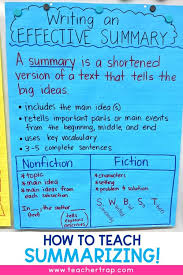 Writing an
EFFECTIVE SUMMARY
A summary is a shortened
version of a text that tells the
big ideas.
• includes the main idea(s)
• retells important parts or main events
from the beginning, middle, and end
• uses key vocabulary
• 3-5 complete sentences
Nonfiction
Fiction
* topic
* main idea
* main ideas from
each subsection
In , the author
tells
explains
describes
* characters
* setting
* problem & solution
S.W.B.S.T
HOW TO TEACH
SUMMARIZING!
www.teachertrap.com